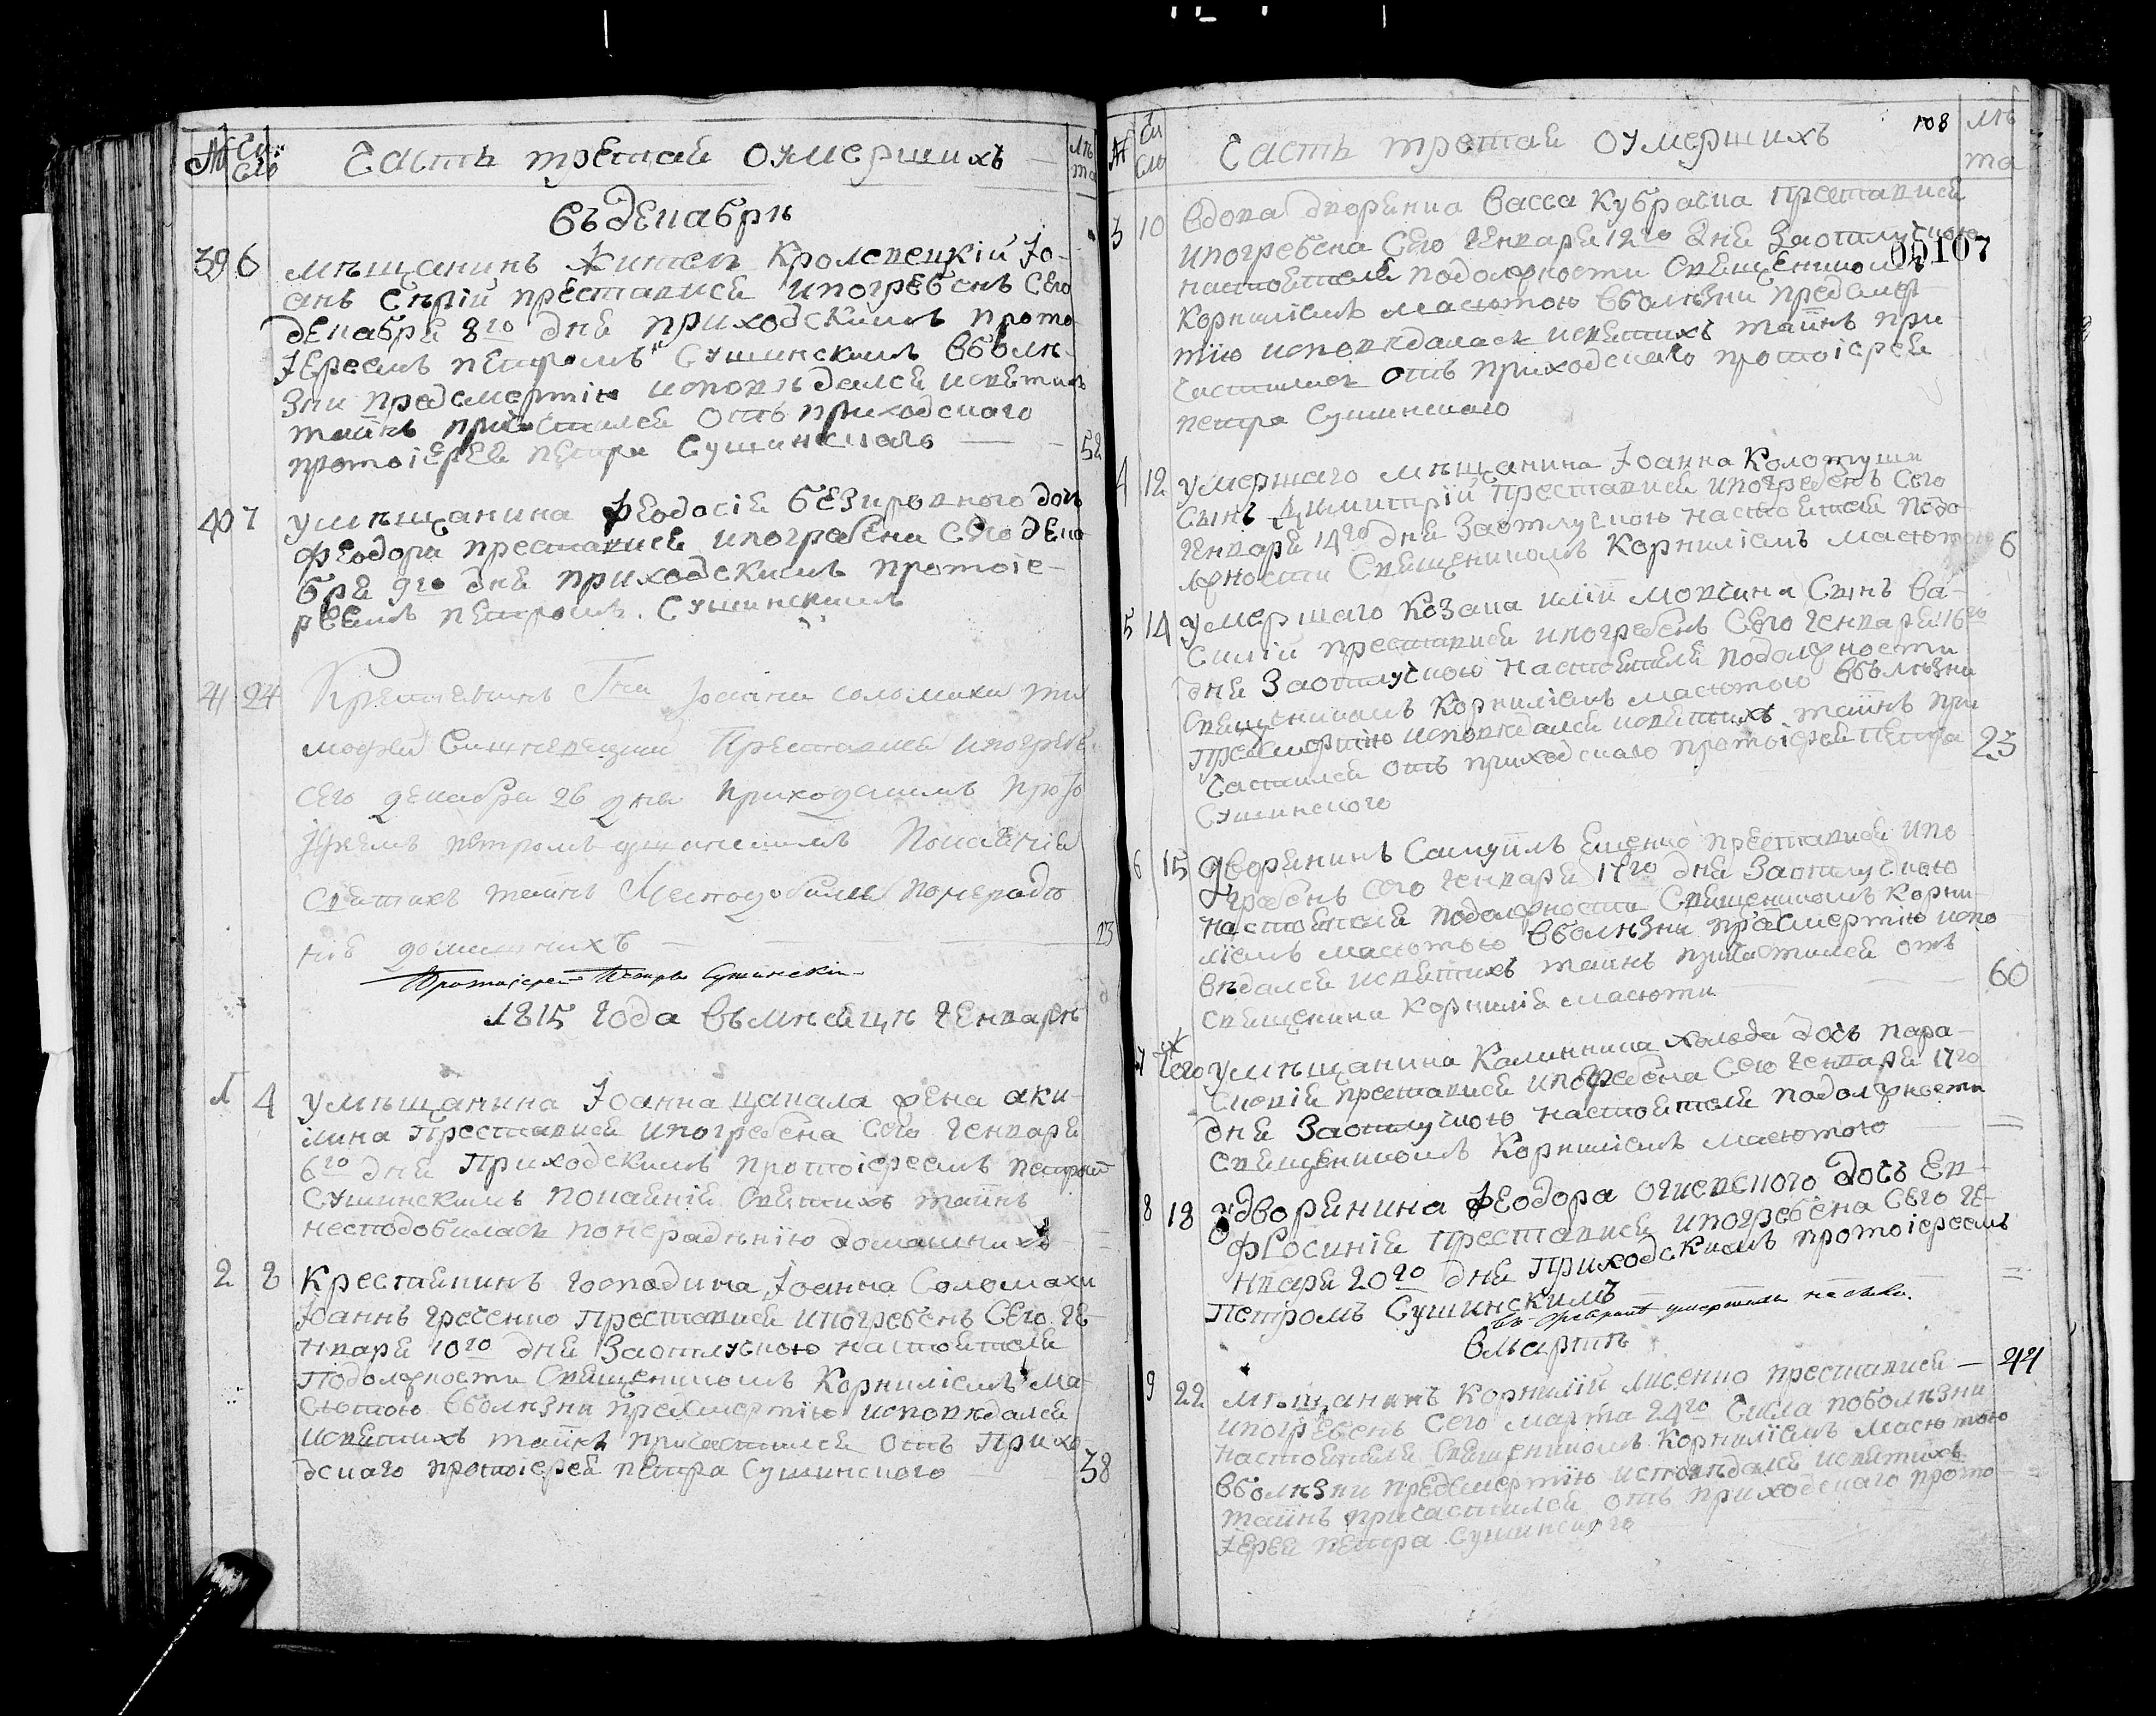 № Чи сло Часть третая оумершихъ лѣ та
въ декабрѣ
39 6 мѣщанинъ житель Кролевецкій Іо-
анъ Сѣрій преставися и погребенъ сего
декабря 8го дня приходскимъ прото
Іереемъ Петромъ Сушинскимъ въ болѣ-
зни предсмертію исповѣдался и святихъ
таинъ причастился отъ приходскаго
протоіерея Петра Сушинскаго 52
40 7 у мѣщанина Феодосія безировного дочь
Феодора преставися и погребена сего дека
бря 9го дня приходскимъ протоіе-
реемъ Петромъ Сушинскимъ
41 24 Крестянинъ Гна Іоанна Соломахи ти
мофей Вишневецкий Преставися и погребе.
сего декабря 26 дня приходскимъ Прото
Іереемъ Петромъ Покаяния
святихъ таинъ Неподобился по нерадѣ
нію домашнихъ 23
Протоіерей Петръ Сушинскій
1815 года въ мѣсяцѣ Генварѣ
1 4 у мѣщанина Іоанна цапала жена аки-
лина Преставися и погребена сего Генваря
6го дня Приходскимъ протоіереемъ Петромъ
Сушинскимъ покаянія святихъ таинъ
несподобилась по нерадѣнію домашнихъ
2 8 Крестянинъ господина Іоанна Соломахи
Іоаннъ Греченко Преставися и погребенъ сего Ге-
нваря 10го дня За отлучкою настоятеля
По должности Священникомъ Корниліемъ Ма-
сютою въ болѣзни предсмертію исповѣдался
и святихъ таинъ причастился отъ Прихо
дскаго протоіерея Петра Сушинского 38
№ Чи сло Часть третая оумершихъ 108 лѣ та
3 10 Вдова дворянка Васса Кубрасна Преставися
и погребена сего Генваря 12го дня За отлучкою
00107
настоятеля по должности Священникомъ
Корниліемъ Масютою въ болѣзни предсмер-
тію исповѣдалась и святихъ таинъ при
частилась отъ приходскаго протоіерея
Петра Сушинскаго
4 12 умершаго мѣщанина Іоанна Колотуши
сынъ Димитрій Преставися и погребенъ сего
Генваря 14го дня За отлучкою настоятеля по до-
лжности Священникомъ Корниліемъ Масютою 6
5 14 умершаго Козака Иліи Мовчина Сынъ Ва-
силій преставися и погребенъ сего Генваря 16го
дня За отлучкою настоятеля по должности
Священникомъ Корниліемъ Масютою въ болѣзни
предсмертію исповѣдался и святихъ таинъ при
частился отъ приходскаго протоіерея Петра 23
Сушинского
6 15 дворянинъ Самуилъ Ященко преставися и по
гребенъ сего Генваря 17го дня За отлучкою
настоятеля по должности Священникомъ Корни-
ліемъ Масютою въ болѣзни предсмертію испо
вѣдался и святихъ таинъ причастился отъ
священика Корнилія Масюти 60
7 тж того у мѣщанина Калинника дочь пара-
сковія преставися и погребена сего Генваря 17го
дня За отлучкою настоятеля по должности
Священникомъ Корниліемъ Масютою
8 18 у дворянина Феодора Огиевского дочь Ев-
фросинія Преставися и погребена сего Ге-
нваря 20го дня Приходскимъ протоіереемъ
Петромъ Сушинскимъ
въ Февралѣ умершихъ не было.
в Мартѣ
9 22 мѣщанинъ Корнилій Лисенко преставися 44
и погребенъ сего марта 24го числа по болѣзни
настоятеля Священникомъ Корниліемъ Масютою
въ болѣзни предсмертію исповѣдался и святихъ
таинъ причастился отъ приходскаго прото
Іерея Петра Сушинского